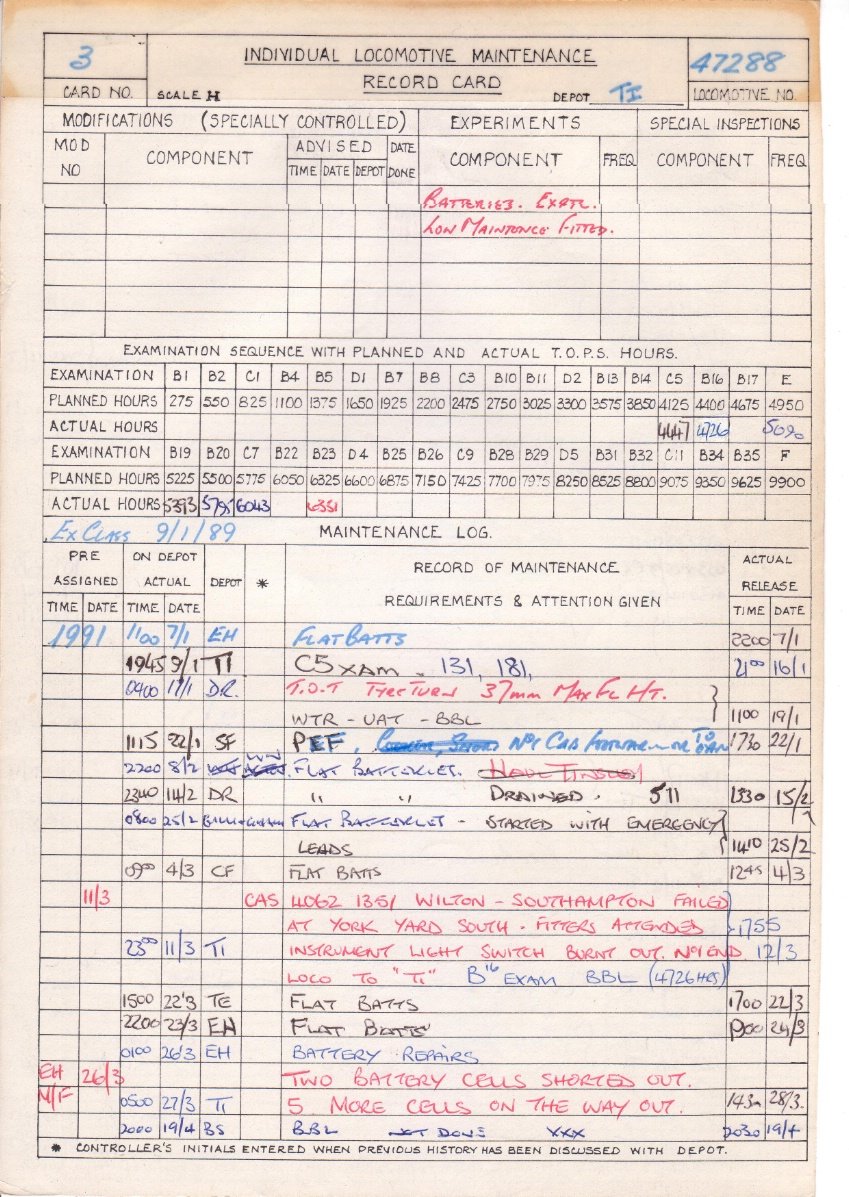 3 INDIVIDUAL LOCOMOTIVE MAINTENANCE 47288
RECORD CARD
CARD NO. SCALE H DEPOT TI LOCOMOTIVE NO.
MODIFICATIONS (SPECIALLY CONTROLLED) EXPERIMENTS SPECIAL INSPECTIONS
MOD NO COMPONENT ADVISED DATE DONE COMPONENT FREQ COMPONENT FREQ
TIME DATE DEPOT
BATTERIES. EXPTL.
LOW MAINTONCE FITTED.
EXAMINATION SEQUENCE WITH PLANNED AND ACTUAL T.O.P.S. HOURS.
EXAMINATION B1 B2 C1 B4 B5 D1 B7 B8 C3 B10 B11 D2 B13 B14 C5 B16 B17 E
PLANNED HOURS 275 550 825 1100 1375 1650 1925 2200 2475 2750 3025 3300 3575 3850 4125 4400 4675 4950
ACTUAL HOURS 4447 4726 5090
EXAMINATION B19 B20 C7 B22 B23 D4 B25 B26 C9 B28 B29 D5 B31 B32 C11 B34 B35 F
PLANNED HOURS 5225 5500 5775 6050 6325 6600 6875 7150 7425 7700 7975 8250 8525 8800 9075 9350 9625 9900
ACTUAL HOURS 5393 5795 6043 6351
EX CLASS 9/1/89 MAINTENANCE LOG.
PRE ASSIGNED ON DEPOT ACTUAL DEPOT * RECORD OF MAINTENANCE ACTUAL RELEASE
REQUIREMENTS & ATTENTION GIVEN
TIME DATE TIME DATE TIME DATE
1991 1100 7/1 EH FLAT BATTS 2200 7/1
1945 9/1 TI C5 XAM - 131, 181, 2100 16/1
0900 17/1 DR. T.O.T TYRE TURN 37mm MAX FL HT.
WTR - UAT - BBL 1100 19/1
1115 22/1 SF PEF, No1 CAB TO 1730 22/1
2200 8/2 FLAT BATTERIES.
2340 14/2 DR " " DRAINED. 511 1330 15/2
0800 25/2 FLAT BATTERIES - STARTED WITH EMERGENCY
LEADS 1410 25/2
0900 4/3 CF FLAT BATTS 1245 4/3
11/3 CAS 4O62 1351 WILTON - SOUTHAMPTON FAILED
AT YORK YARD SOUTH - FITTERS ATTENDED 1755
2300 11/3 TI INSTRUMENT LIGHT SWITCH BURNT OUT. No1 END. 12/3
LOCO TO "TI" B16 EXAM BBL (4726 HRS)
1500 22/3 TE FLAT BATTS 1700 22/3
2200 23/3 EH FLAT BATTS 24/3
0100 26/3 EH BATTERY REPAIRS
EH 26/3 TWO BATTERY CELLS SHORTED OUT.
N/F 0500 27/3 TI 5 MORE CELLS ON THE WAY OUT. 28/3.
2000 19/4 BS BBL NOT DONE XXX 2030 19/4
* CONTROLLER'S INITIALS ENTERED WHEN PREVIOUS HISTORY HAS BEEN DISCUSSED WITH DEPOT.